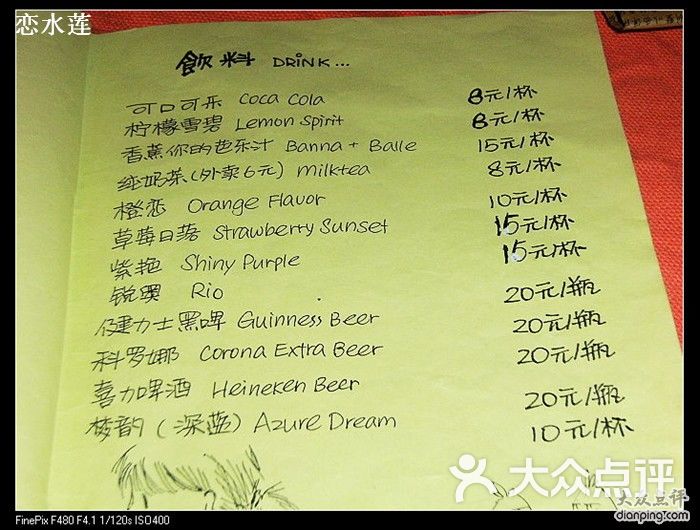 恋水莲
飲料 DRINK...
可口可乐 Coca Cola 8元/杯
柠檬雪碧 Lemon Spirit 8元/杯
香蕉你的芭乐汁 Banna + Balle 15元/杯
纯奶茶(外卖6元) milktea 8元/杯
橙恋 Orange Flavor 10元/杯
草莓日落 Strawberry Sunset 15元/杯
紫艳 Shiny Purple 15元/杯
锐澳 Rio 20元/瓶
健力士黑啤 Guinness Beer 20元/瓶
科罗娜 Corona Extra Beer 20元/瓶
喜力啤酒 Heineken Beer 20元/瓶
梦韵(深蓝) Azure Dream 10元/杯
大众点评
大众点评
dianping.com
FinePix F480 F4.1 1/120s ISO400